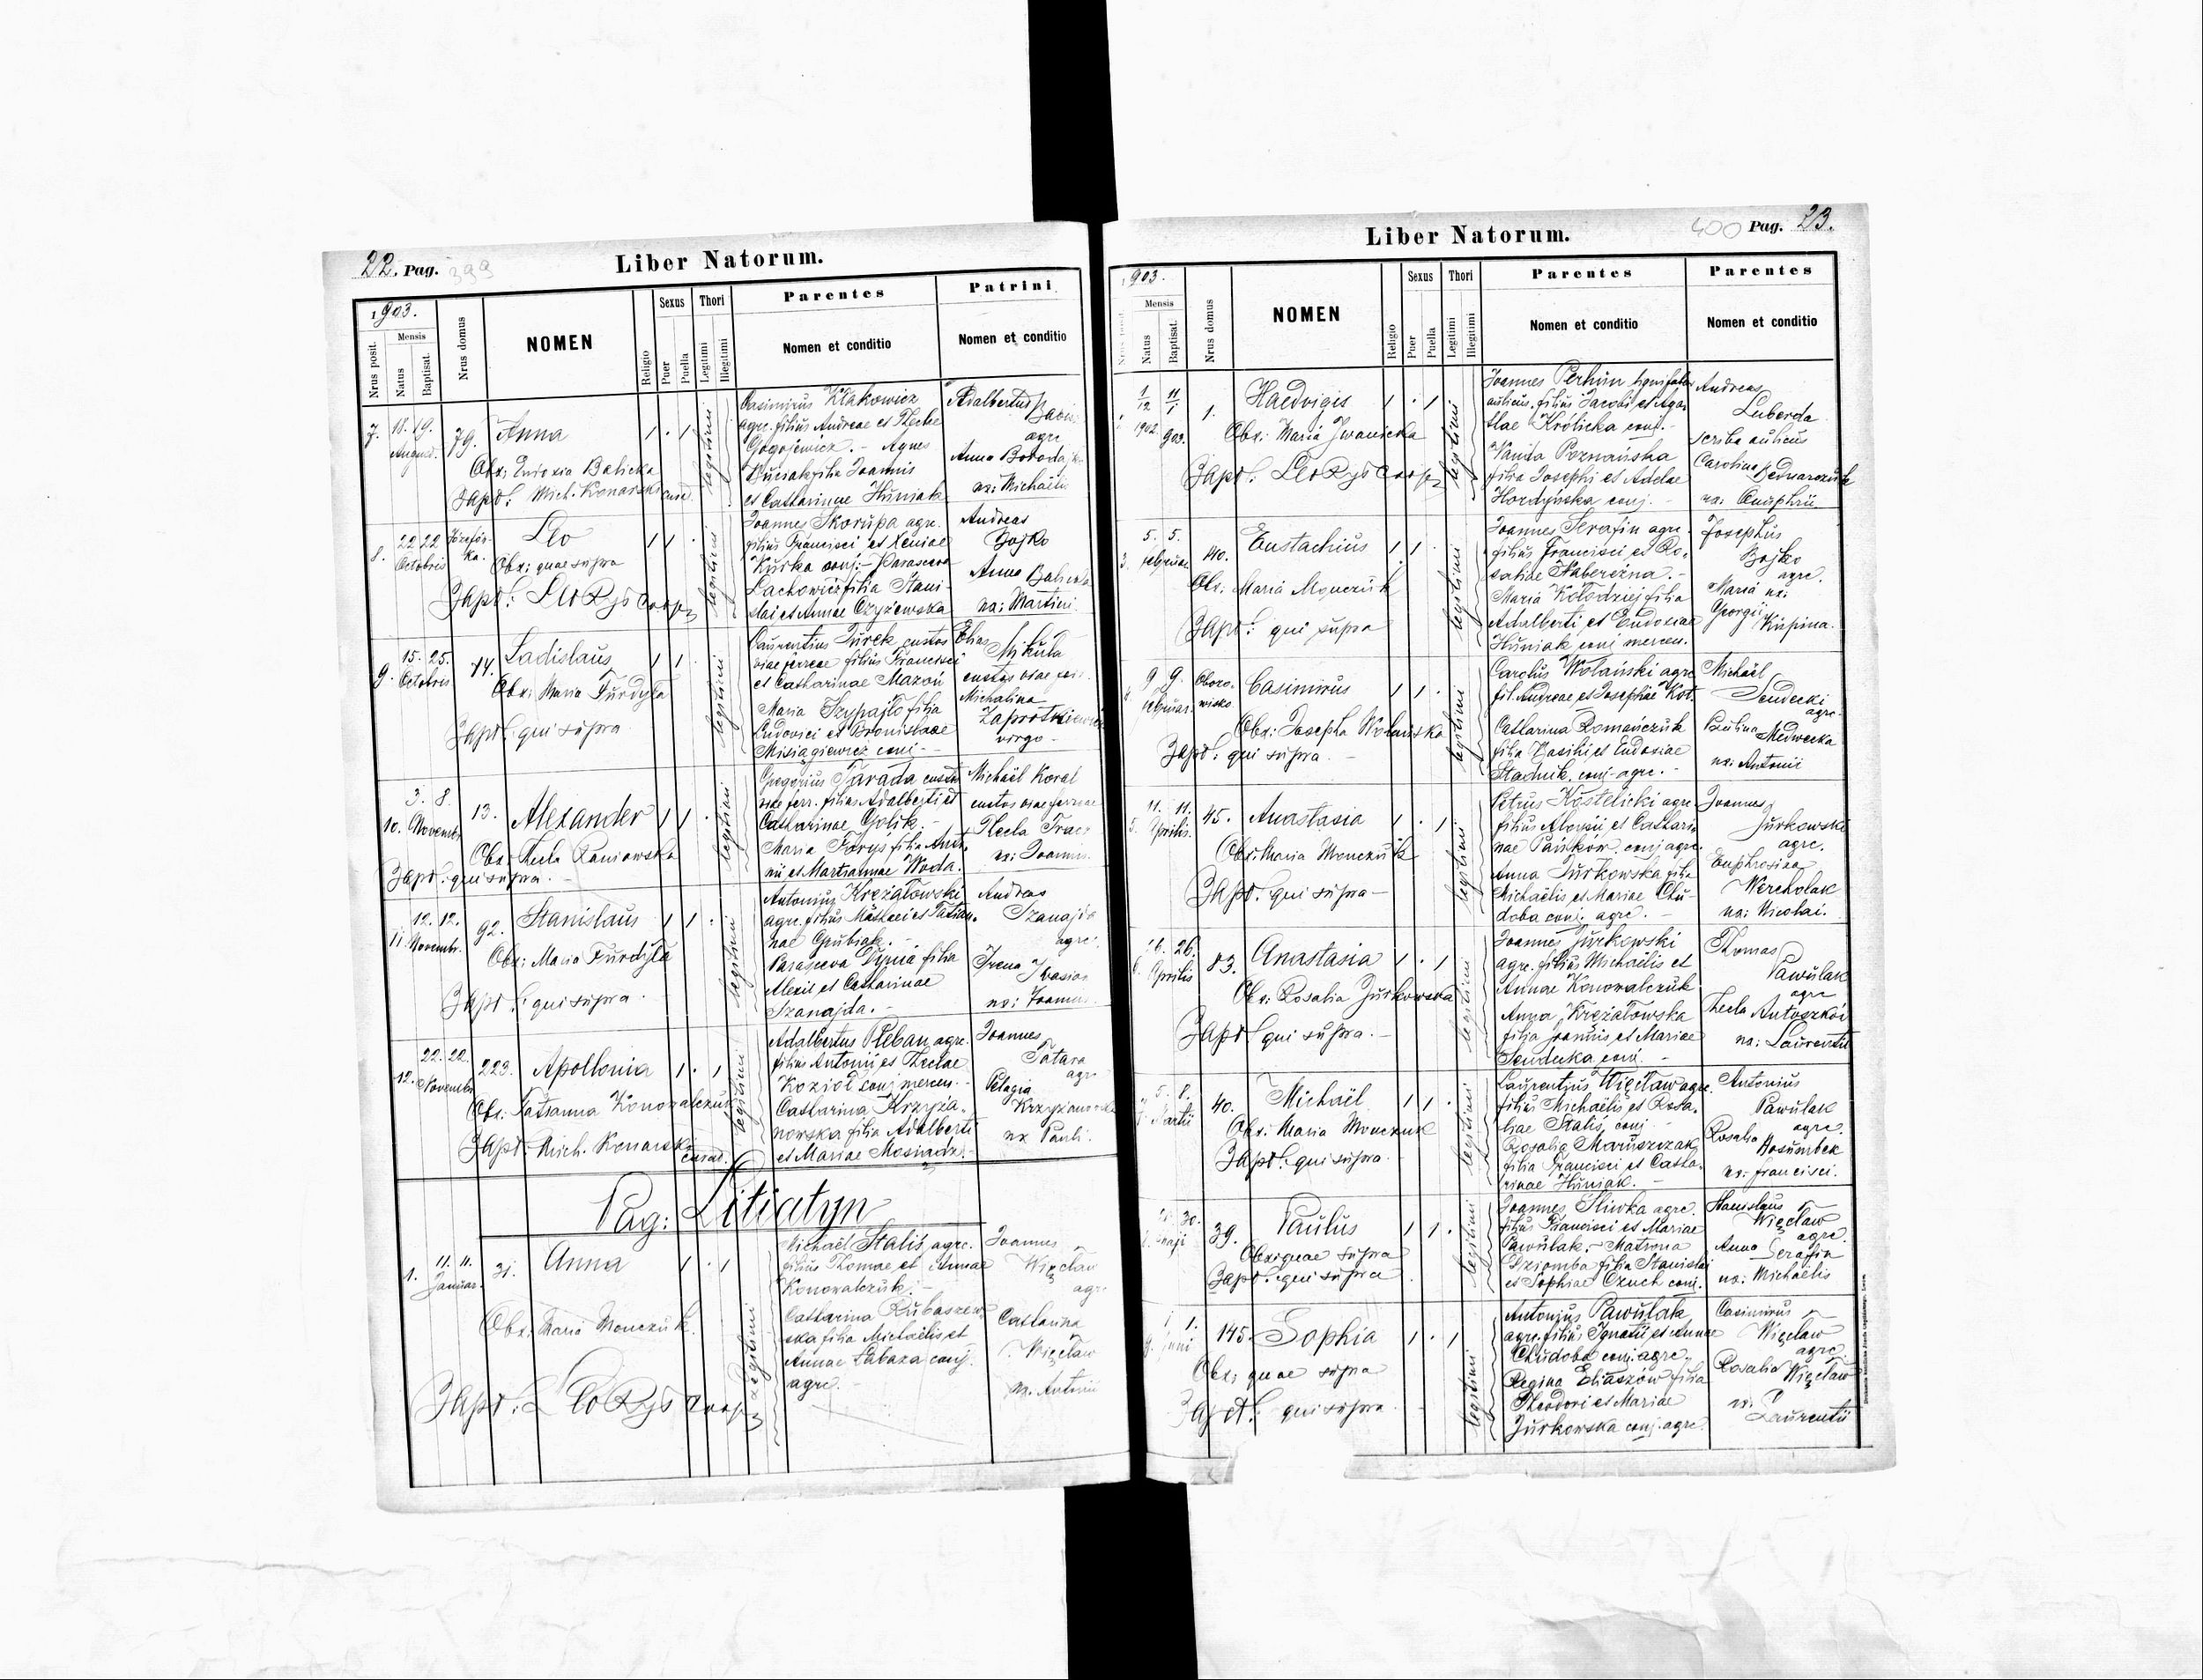 22. Pag. 399
Liber Natorum.
1903.
Nrus posit.
Mensis
Natus
Baptisat.
Nrus domus
NOMEN
Religio
Sexus
Puer
Puella
Thori
Legitimi
Illegitimi
Parentes
Nomen et conditio
Patrini
Nomen et conditio
7. 18. 19. August. 79. Anna 1 . 1
Obs: Eudoxia Balicka
Bapt: Mich. Konarski curat.
legitimi
Casimirus Kłakowicz
agre. filius Andreae et Theclae
Gogojewicz. - Agnes
filia Joannis
et Catharinae Huniak
Adalbertus
agre
Anna
ux: Michaelis
8. 22 22 Octobris Józefów-
ka. Leo 1 1
Obs: quae supra
Bapt: Leo Ryś Coop
legitimi
Joannes Skorupa agre.
filius Francisci et Xeniae
Kurka conj: - Parasceva
Lachowicz filia Stani-
slai et Annae Czyżewska
Andreas
Bojko
Anna Balicka
ux: Martini
9. 15. 25. Octobris 14. Ladislaus 1 1
Obs: Maria Furdyła
Bapt: qui supra
legitimi
Laurentius Turek custos
viae ferreae filius Francisci
et Catharinae Mazoń
Maria Szypajło filia
Ludovici et Bronislaae
Misiagiewicz conj. -
Elias Mikuła
custos viae fer.
Michalina
virgo -
10. 3. 8. Novembr. 13. Alexander 1 1 .
Obs: Thecla Laniowska
Bapt: qui supra. -
legitimi
Gregorius Tarada custos
viae ferr. filius Adalberti et
Catharinae Golik. -
Maria Forys filia Anto-
nii et Martiannae Woda.
Michaël Koral
custos viae ferreae
Thecla
ux: Joannis
11. 12. 12. Novembr. 92. Stanislaus 1 1 .
Obs: Maria Furdyła
Bapt: qui supra.
legitimi
Antonius Krężałowski
agre. filius Mathaei et Tatian-
nae Grubiak. -
Parasceva Dynia filia
Alexii et Catharinae
Szanajda.
Andreas
Szanajda
agre.
Irena Iwasion
ux: Joannis
12. 22. 22. Novembr. 223. Apollonia 1 . 1
Obs: Tatianna Konowalczuk
Bapt: Mich. Konarski
curat.
legitimi
Adalbertus Pleban agre.
filius Antonii et Theclae
Kozioł conj mercen. -
Catharina Krzyża-
nowska filia Adalberti
et Mariae Mosiadz. -
Joannes
Tatara
agre
Pelagia
Krzyżanowska
ux Pauli.
Pag: Litiatyn
1. 11. 11. Januar. 31. Anna 1 . 1
Obs: Maria Monczuk.
Bapt: Leo Ryś Coop
legitimi
Michaël Stalis, agre.
filius Thomae et Annae
Konowalczuk. -
Catharina Kubaszew-
ska filia Michaëlis et
Annae Łabaza conj.
agre. -
Joannes
Więcław
agr.
Catharina
Więcław
ux. Antonii
400 Pag. 23.
Liber Natorum.
1903.
Mensis
Natus
Baptisat.
Nrus domus
NOMEN
Religio
Sexus
Puer
Puella
Thori
Legitimi
Illegitimi
Parentes
Nomen et conditio
Parentes
Nomen et conditio
1/12 1902 11/1 903. 1. Haedvigis 1 . 1
Obs: Maria Iwanicka
Bapt: Leo Ryś Coop
legitimi
Joannes Perhun
aulicus. filius Jacobi et Aga-
tlae Królicka conj. -
Vanda Poznańska
filia Josephi et Adelae
Hordyńska conj. -
Andreas
Luberda
scriba aulicus
Carolina Bednarczuk
ux: Onuphrii
3. 5. 5. Februar. 140. Eustachius 1 1 .
Obs: Maria Monczuk
Bapt: qui supra
legitimi
Joannes Serafin agre.
filius Francisci et Ro-
saliae Nabereżna. -
Maria Kołodziej filia
Adalberti et Eudoxiae
Huniak conj mercen.
Josephus
Bojko
agre.
Maria ux:
Georgii Kirpina.
9 9. Februar. Oboro-
wisko Casimirus 1 1 .
Obs: Josepha Wolańska
Bapt: qui supra. -
legitimi
Carolus Wolański agre
fil. Andreae et Josephae Kot.
Catharina Romańczuk
filia Basilii et Eudoxiae
Stadnik. conj. agre. -
Michaël
Sendecki
agre.
Paulina Medwecka
ux: Antonii
5. 11. 11. Aprilis. 45. Anastasia 1 . 1
Obs: Maria Monczuk
Bapt: qui supra -
legitimi
Petrus Kostelicki agre.
filius Aloysii et Cathari-
nae Pańków. conj agre.
Anna Jurkowska filia
Michaëlis et Mariae Chu-
doba conj. agre. -
Joannes
Jurkowski
agre.
Euphrosina
Wercholak
ux: Nicolai.
6. 16. 26. Aprilis 83. Anastasia 1 . 1
Obs: Rosalia Jurkowska
Bapt: qui supra. -
legitimi
Joannes Jurkowski
agre. filius Michaëlis et
Annae Konowalczuk
Anna Krężałowska
filia Joannis et Mariae
Sendecka conj. -
Thomas
Pawulak
agre
Thecla Antoszków
ux: Laurentii
5. 8. Martii 40. Michaël 1 1 .
Obs: Maria Monczuk
Bapt: qui supra.
legitimi
Laurentius Więcław agre.
filius Michaëlis et Rosa-
liae Stalis, conj
Rosalia Maruszczak
filia Francisci et Catha-
rinae Huniak. -
Antonius
Pawulak
agre.
Rosalia
ux. Francisci.
30. Maji 39. Paulus 1 1 .
Obs: quae supra
Bapt: qui supra
legitimi
Joannes Śliwka agre.
filius Francisci et Mariae
Pawulak. - Matrona
Dziomba filia Stanislai
et Sophiae Czuch conj.
Stanislaus
Więcław
agre.
Anna Serafin
ux: Michaëlis
1 1. Juni 145. Sophia 1 . 1
Obs: quae supra
Bapt: qui supra.
legitimi
Antonius Pawulak
agre. filius Ignatii et Annae
Chudoba conj. agre.
Regina Eliaszów filia
Theodori et Mariae
Jurkowska conj. agre.
Casimirus
Więcław
agre.
Rosalia Więcław
ux.
Laurentii